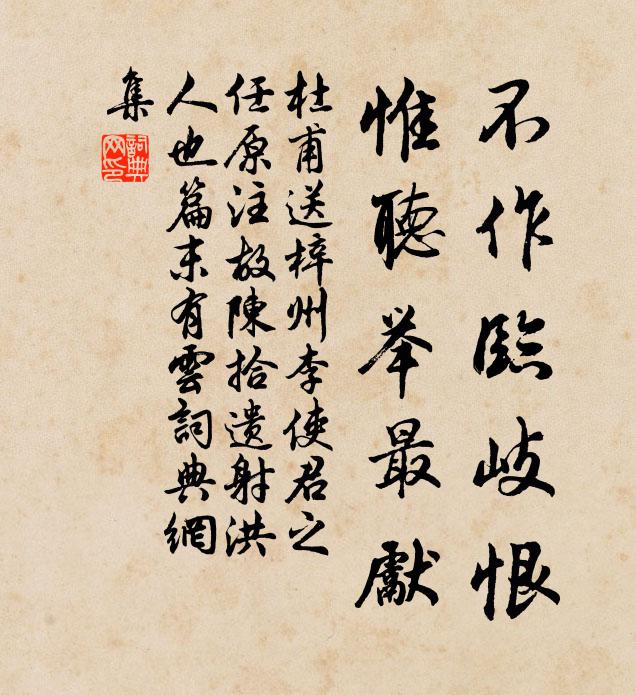 不作臨歧恨
惟聽举最獻
杜甫送梓州李使君之
任原注故陳拾遺射洪
人也篇末有雲詞典網
集
詞典網印